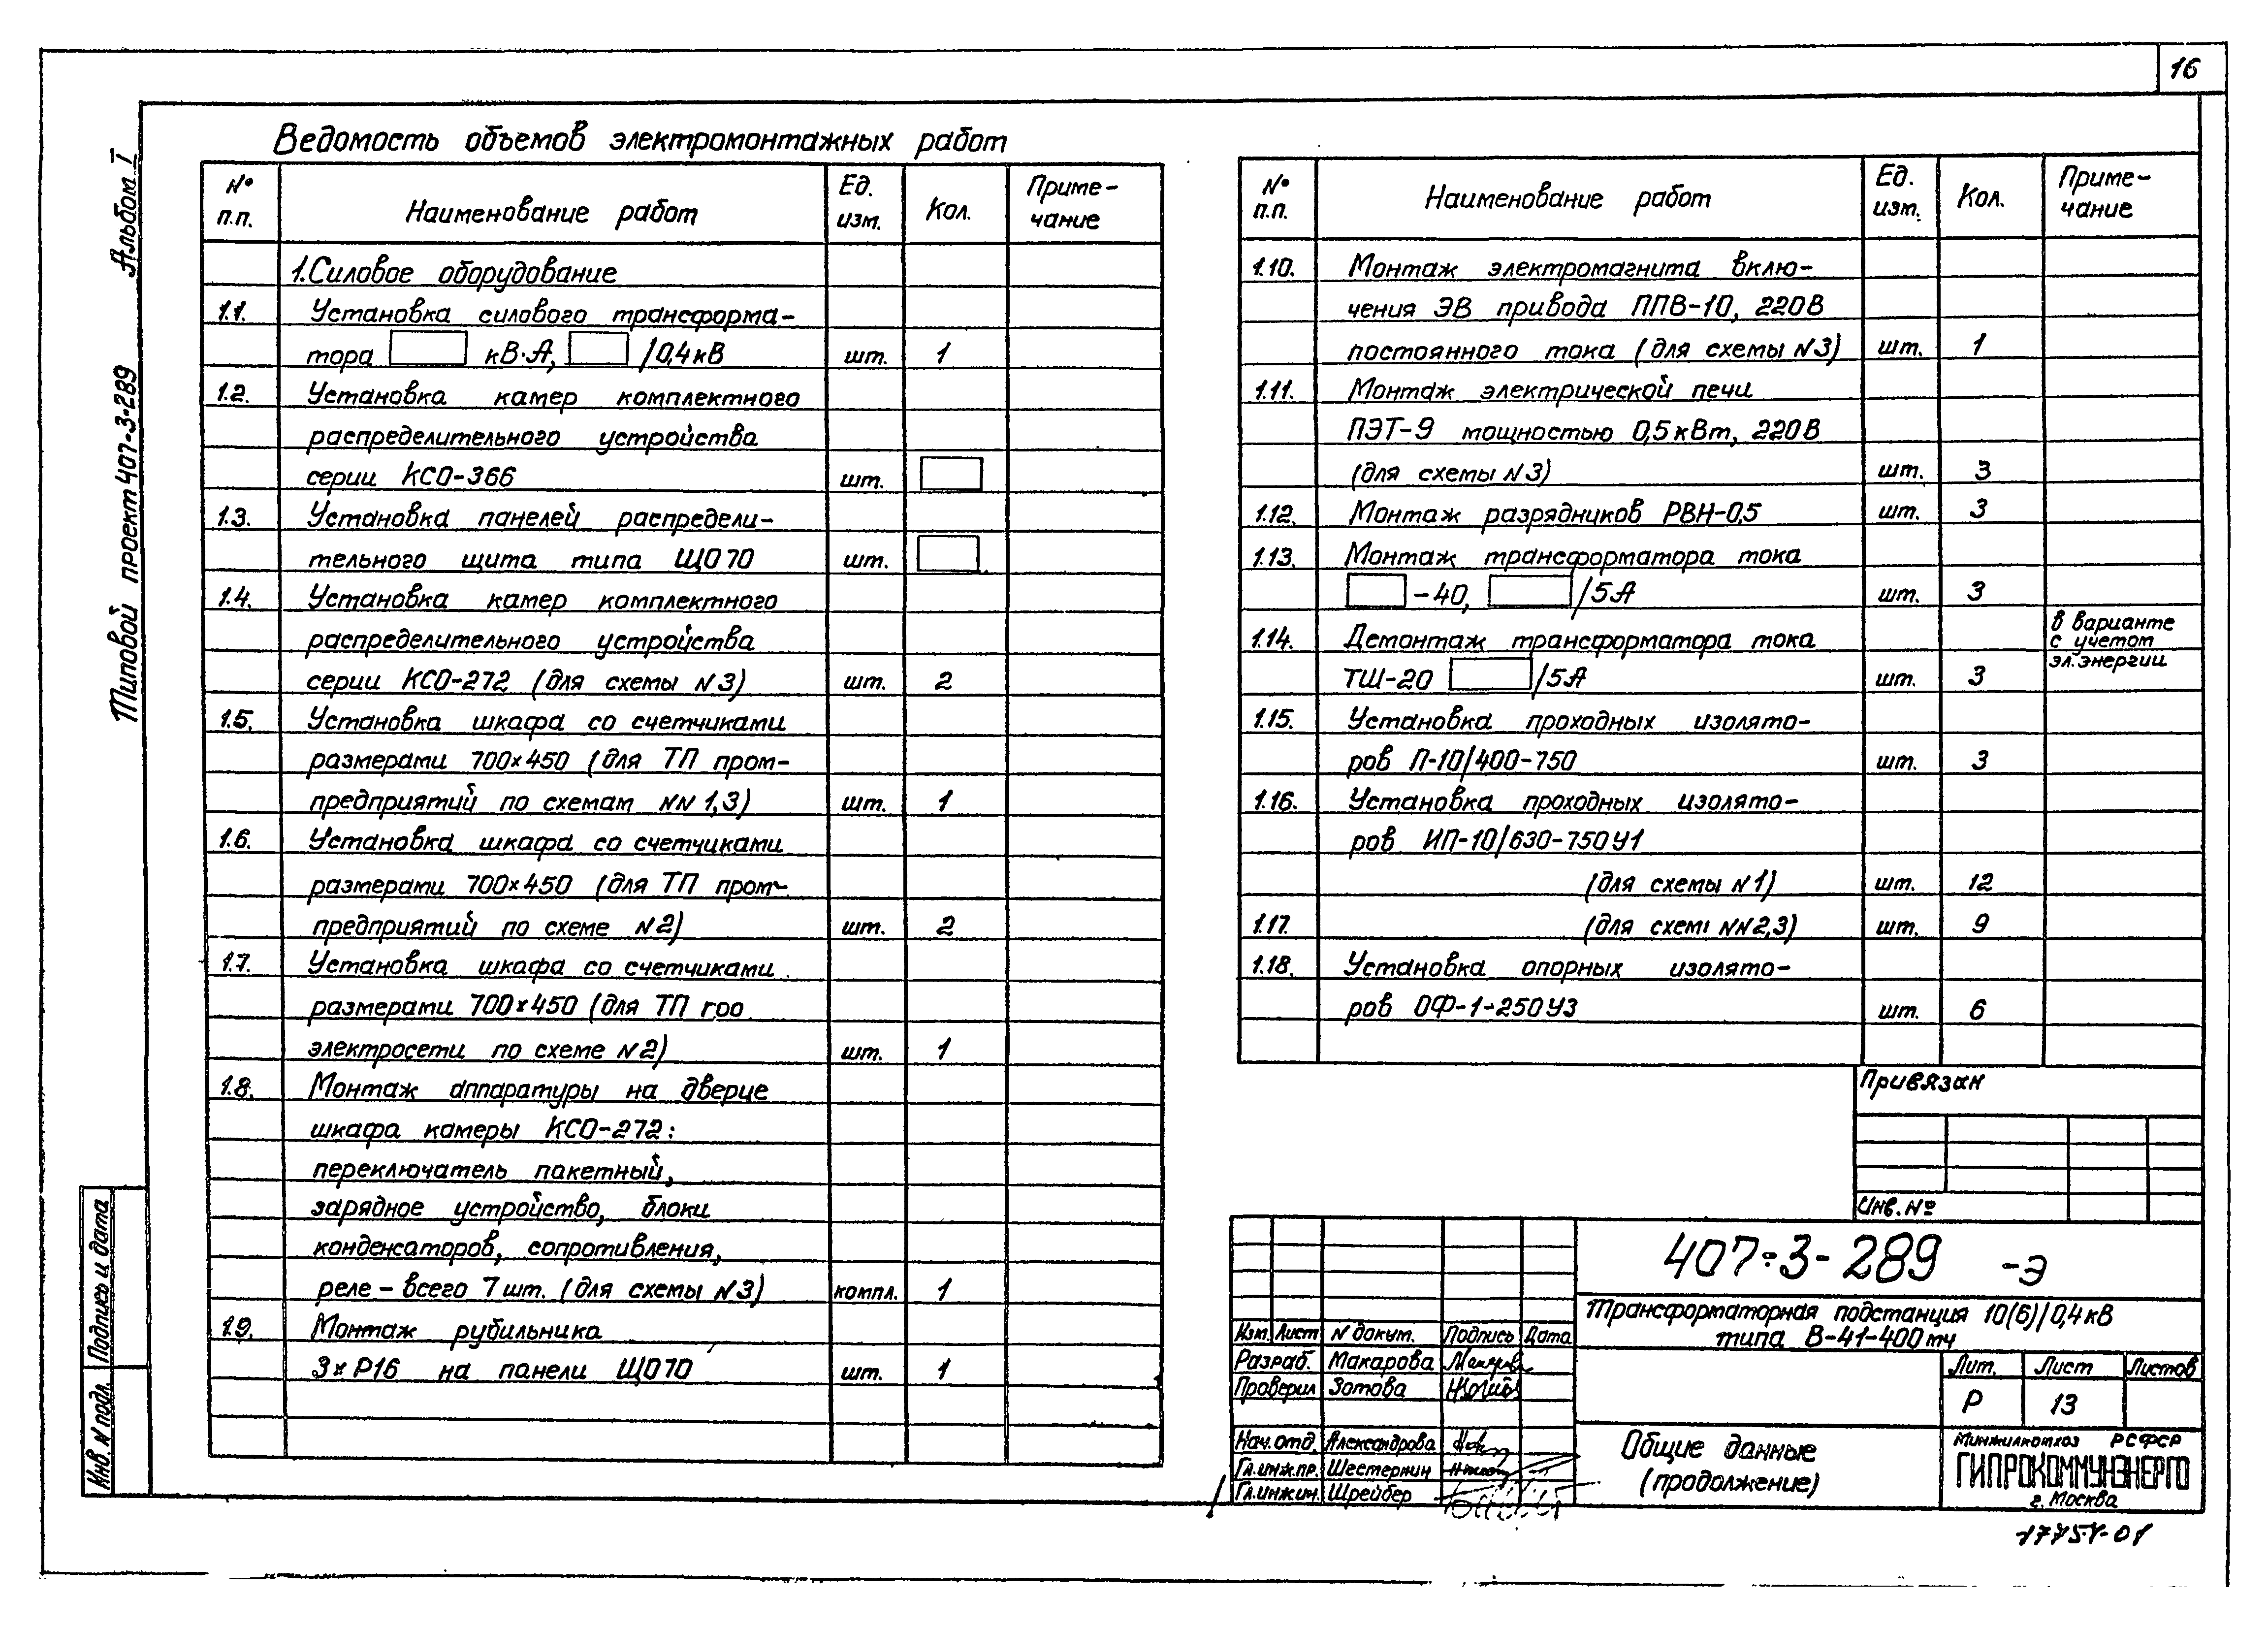 16
Альбом I
Типовой проект 407-3-289
Ведомость объемов электромонтажных работ
№ п.п. Наименование работ Ед. изм. Кол. Приме-чание
1. Силовое оборудование
1.1. Установка силового трансформа-
тора кВ·А, /0,4кВ шт. 1
1.2. Установка камер комплектного
распределительного устройства
серии КСО-366 шт.
1.3. Установка панелей распредели-
тельного щита типа ЩО70 шт.
1.4. Установка камер комплектного
распределительного устройства
серии КСО-272 (для схемы N3) шт. 2
1.5. Установка шкафа со счетчиками
размерами 700×450 (для ТП пром-
предприятий по схемам NN 1,3) шт. 1
1.6. Установка шкафа со счетчиками
размерами 700×450 (для ТП пром-
предприятий по схеме N2) шт. 2
1.7. Установка шкафа со счетчиками
размерами 700×450 (для ТП
электросети по схеме N2) шт. 1
1.8. Монтаж аппаратуры на дверце
шкафа камеры КСО-272:
переключатель пакетный,
зарядное устройство, блоки
конденсаторов, сопротивления,
реле - всего 7 шт. (для схемы N3) компл. 1
1.9. Монтаж рубильника
3×Р16 на панели ЩО70 шт. 1
№ п.п. Наименование работ Ед. изм. Кол. Приме-чание
1.10. Монтаж электромагнита вклю-
чения ЭВ привода ППВ-10, 220В
постоянного тока (для схемы N3) шт. 1
1.11. Монтаж электрической печи
ПЭТ-9 мощностью 0,5кВт, 220В
(для схемы N3) шт. 3
1.12. Монтаж разрядников РВН-0,5 шт. 3
1.13. Монтаж трансформатора тока
-40, /5А шт. 3
1.14. Демонтаж трансформатора тока в варианте с учетом
ТШ-20 /5А шт. 3 эл.энергии
1.15. Установка проходных изолято-
ров П-10/400-750 шт. 3
1.16. Установка проходных изолято-
ров ИП-10/630-750У1
(для схемы N1) шт. 12
1.17. (для схем NN2,3) шт. 9
1.18. Установка опорных изолято-
ров ОФ-1-250У3 шт. 6
Привязан
Инв. №
407-3-289 -Э
Трансформаторная подстанция 10(6)/0,4кВ
типа В-41-400мч
Изм. Лист N докум. Подпись Дата
Разраб. Макарова
Проверил Зотова
Нач.отд. Александрова
Гл.инж.пр. Шестернин
Гл.инжин. Шрейбер
Лит. Лист Листов
Р 13
Общие данные
(продолжение)
Минжилкомхоз РСФСР
ГИПРОКОММУНЭНЕРГО
г. Москва
Подпись и дата
Инв. N подл.
17751-01